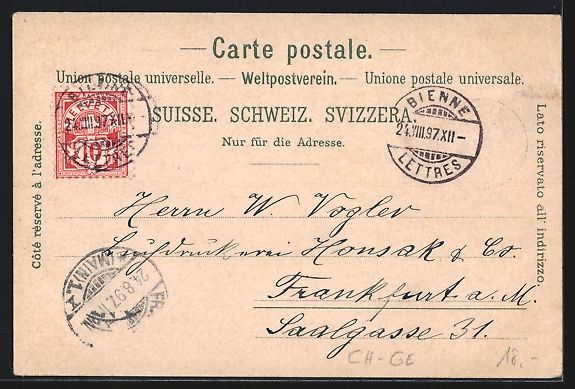 Carte postale.
Union postale universelle. — Weltpostverein. — Unione postale universale.
SUISSE. SCHWEIZ. SVIZZERA.
Nur für die Adresse.
Côté réservé à l'adresse.
Lato riservato all' indirizzo.
HELVETIA
10
24.VIII.97.XII-
BIENNE
24.VIII.97.XII-
LETTRES
Herrn W. Vogler
Honsak & Co.
Frankfurt a. M.
Saalgasse 31.
(MAIN) 1.
24.8.97.
CH-GE
18.-